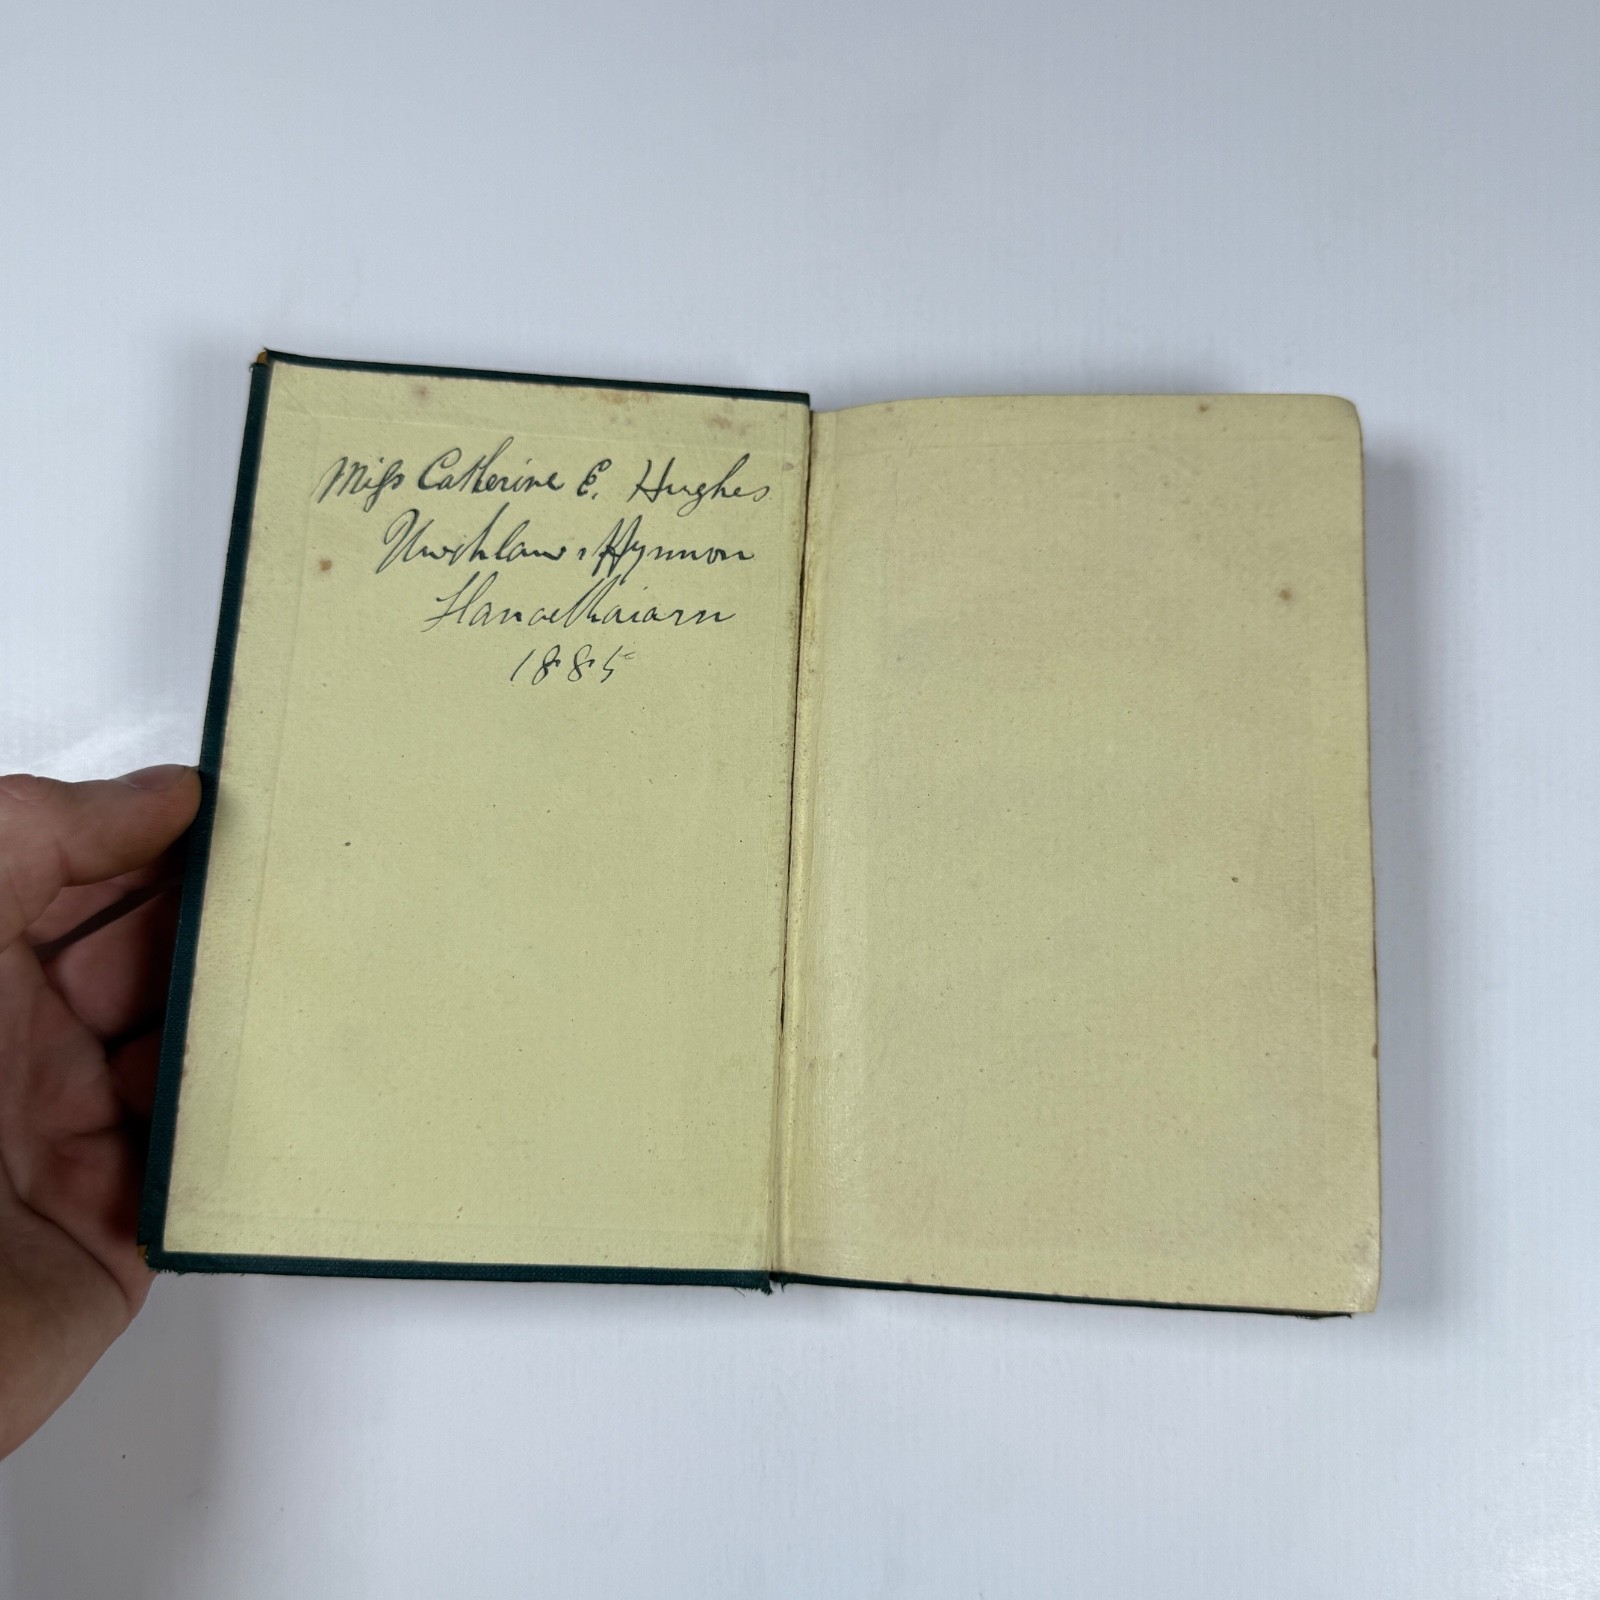 Miss Catherine E. Hughes
Uwchlaw'r Ffynnon
Llanaelhaiarn
1885